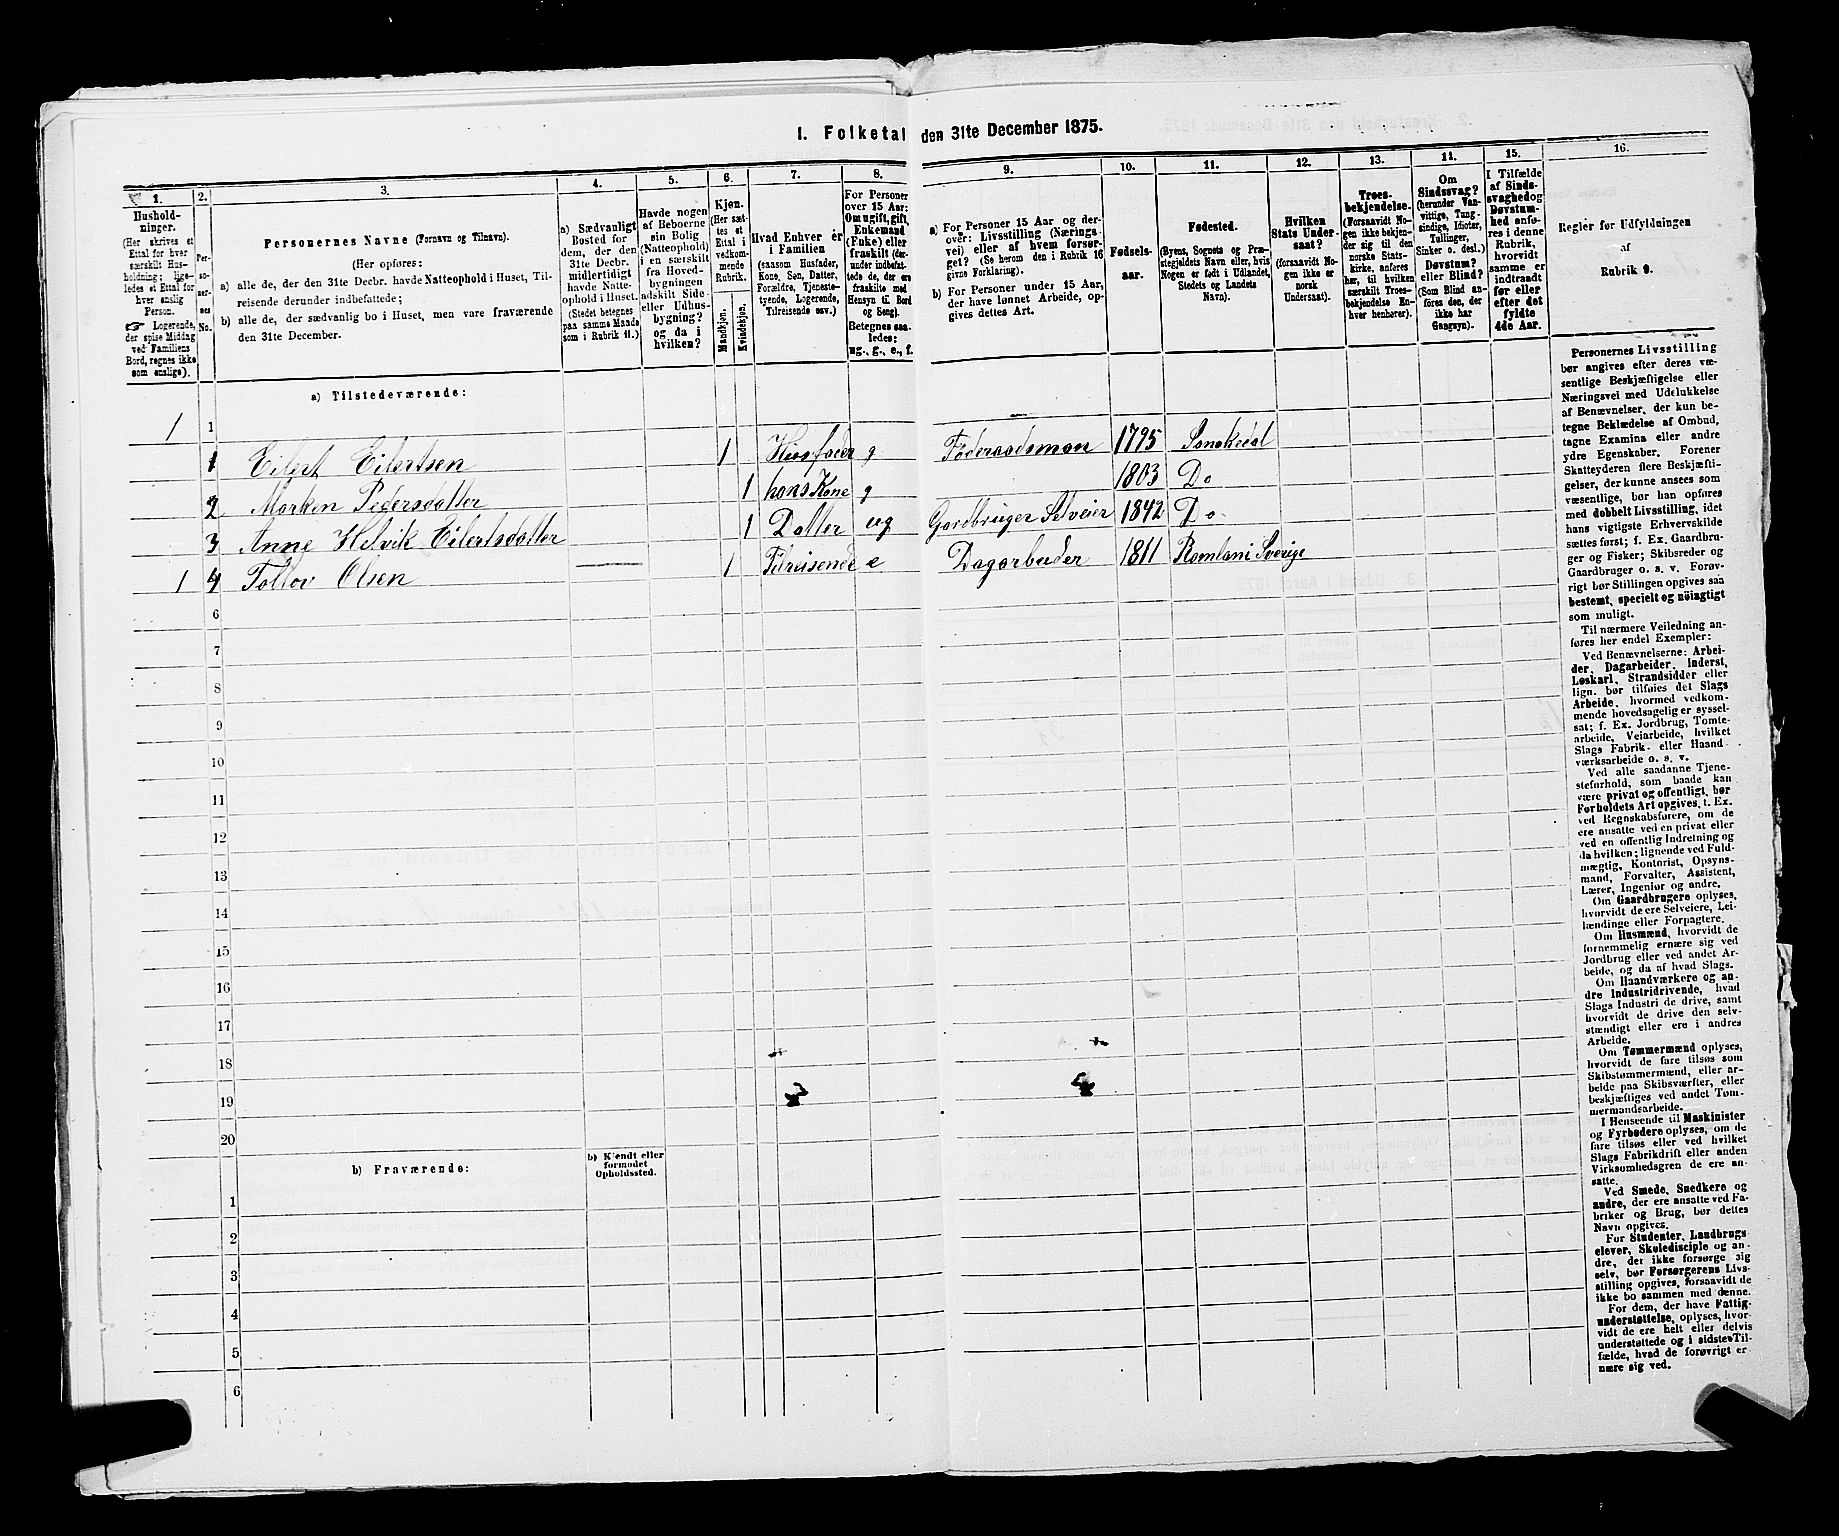 I. Folketal den 31te December 1875.
1. 2. 3. 4. 5. 6. 7. 8. 9. 10. 11. 12. 13. 14. 15. 16.
Hushold-
ninger.
(Her skrives et
Ettal for hver
særskilt Hus-
holdning; lige-
ledes et Ettal for
hver enslig
Person.
☞ Logerende,
der spise Middag
ved Familiens
Bord, regnes ikke
som enslige).
Per-
so-
ner-
nes
No.
Personernes Navne (Fornavn og Tilnavn).
(Her opføres:
a) alle de, der den 31te Decbr. havde Natteophold i Huset, Til-
reisende derunder indbefattede;
b) alle de, der sædvanlig bo i Huset, men vare fraværende
den 31te December.
a) Sædvanligt
Bosted for
dem, der den
31te Decbr.
midlertidigt
havde Natte-
ophold i Huset.
(Stedet betegnes
paa samme Maade
som i Rubrik 11.)
Havde nogen
af Beboerne
sin Bolig
(Natteophold)
i en særskilt
fra Hoved-
bygningen
adskilt Side-
eller Udhus-
bygning?
og da i
hvilken?
Kjøn.
(Her sæt-
tes et
Ettal i
vedkom-
mende
Rubrik.
Mandkjøn.
Kvindekjøn.
Hvad Enhver er
i Familien
(saasom Husfader,
Kone, Søn, Datter,
Forældre, Tjeneste-
tyende, Logerende,
Tilreisende osv.)
For Personer
over 15 Aar:
Om ugift, gift,
Enkemand
(Enke) eller
fraskilt (der-
under indbefat-
tede de, der ere
fraskilte med
Hensyn til Bord
og Seng).
Betegnes saa-
ledes:
ug., g., e., f.
a) For Personer 15 Aar og der-
over: Livsstilling (Nærings-
vei) eller af hvem forsør-
get? (Se herom den i Rubrik 16
givne Forklaring).
b) For Personer under 15 Aar,
der have lønnet Arbeide, op-
gives dettes Art.
Fødsels-
aar.
Fødested.
(Byens, Sognets og Præ-
stegjeldets Navn eller, hvis
Nogen er født i Udlandet,
Stedets og Landets
Navn).
Hvilken
Stats Under-
saat?
(forsaavidt No-
gen ikke er
norsk
Undersaat).
Troes-
bekjendelse.
(Forsaavidt No-
gen ikke bekjen-
der sig til den
norske Stats-
kirke, anføres
her, til hvilken
særskilt Troes-
bekjendelse En-
hver henhører).
Om
Sindssvag?
(herunder Van-
vittige, Tung-
sindige, Idioter,
Tullinger,
Sinker o. desl.)
Døvstum?
eller Blind?
(Som Blind an-
føres den, der
ikke har
Gangsyn).
I Tilfælde
af Sinds-
svaghed og
Døvstum-
hed anfø-
res i denne
Rubrik,
hvorvidt
samme er
indtraadt
før eller
efter det
fyldte
4de Aar.
Regler før Udfyldningen
af
Rubrik 9.
a) Tilstedeværende:
1 1 Eilert Eilertsen 1 Huusfader g Føderaadsman 1795 Sanekedal
2 Marken Pedersdatter 1 hans Kone g 1803 Do
3 Anne Helvik Eilertsdatter 1 Datter ug Gardbruger Selveier 1842 Do
1 4 Tollov Olsen 1 Tilreisende e Dagarbeder 1811 Romlan i Sverige
6
7
8
9
10
11
12
13
14
15
16
17
18
19
20
b) Fraværende:
b) Kjendt eller
formodet
Opholdssted.
1
2
3
4
5
6
Personernes Livsstilling
bør angives efter deres væ-
sentlige Beskjæftigelse eller
Næringsvei med Udelukkelse
af Benævnelser, der kun be-
tegne Beklædelse af Ombud,
tagne Examina eller andre
ydre Egenskaber. Forener
Skatteyderen flere Beskjæfti-
gelser, der kunne ansees som
væsentlige, bør han opføres
med dobbelt Livsstilling, idet
hans vigtigste Erhvervskilde
sættes først; f. Ex. Gaardbru-
ger og Fisker; Skibsreder og
Gaardbruger o. s. v. Forøv-
rigt bør Stillingen opgives saa
bestemt, specielt og nøiagtigt
som muligt.
Til nærmere Veiledning an-
føres her endel Exempler:
Ved Benævnelserne: Arbei-
der, Dagarbeider, Inderst,
Løskarl, Strandsidder eller
lign. bør tilføies det Slags
Arbeide, hvormed vedkom-
mende hovedsagelig er syssel-
sat; f. Ex. Jordbrug, Tomte-
arbeide, Veiarbeide, hvilket
Slags Fabrik- eller Haand
værksarbeide o. s. v.
Ved alle saadanne Tjene-
steforhold, som baade kan
være privat og offentligt, bør
Forholdets Art opgives, t. Ex.
ved Regnskabsførere, om de
ere ansatte ved en privat eller
ved en offentlig Indretning og
da hvilken; lignende ved Fuld-
mægtig, Kontorist, Opsyns-
mand, Forvalter, Assistent,
Lærer, Ingeniør og andre.
Om Gaardbrugere oplyses,
hvorvidt de ere Selveiere, Lei-
lændinge eller Forpagtere.
Om Husmænd, hvorvidt de
fornemmelig ernære sig ved
Jordbrug eller ved andet Ar-
beide, og da af hvad Slags.
Om Haandværkere og an-
dre Industridrivende, hvad
Slags Industri de drive, samt
hvorvidt de drive den selv-
stændigt eller ere i andres
Arbeide.
Om Tømmermænd oplyses,
hvorvidt de fare tilsøs som
Skibstømmermænd, eller ar-
beide paa Skibsværfter, eller
beskjæftiges ved andet Tøm-
mermandsarbeide.
I Henseende til Maskinister
og Fyrbødere oplyses, om de
fare tilsøs eller ved hvilket
Slags Fabrikdrift eller anden
Virksomhedsgren de ere an-
satte.
Ved Smede, Snedkere og
andre, der ere ansatte ved Fa-
briker og Brug, bør dettes
Navn opgives.
For Studenter, Landbrugs-
elever, Skoledisciple og an-
dre, der ikke forsørge sig
selv, bør Forsørgerens Livs-
stilling opgives, forsaavidt de
ikke bo sammen med denne.
For dem, der have Fattig-
understøttelse, oplyses, hvor-
vidt de ere helt eller delvis
understøttede og i sidste Til-
fælde, hvad de forøvrigt er-
nære sig ved.